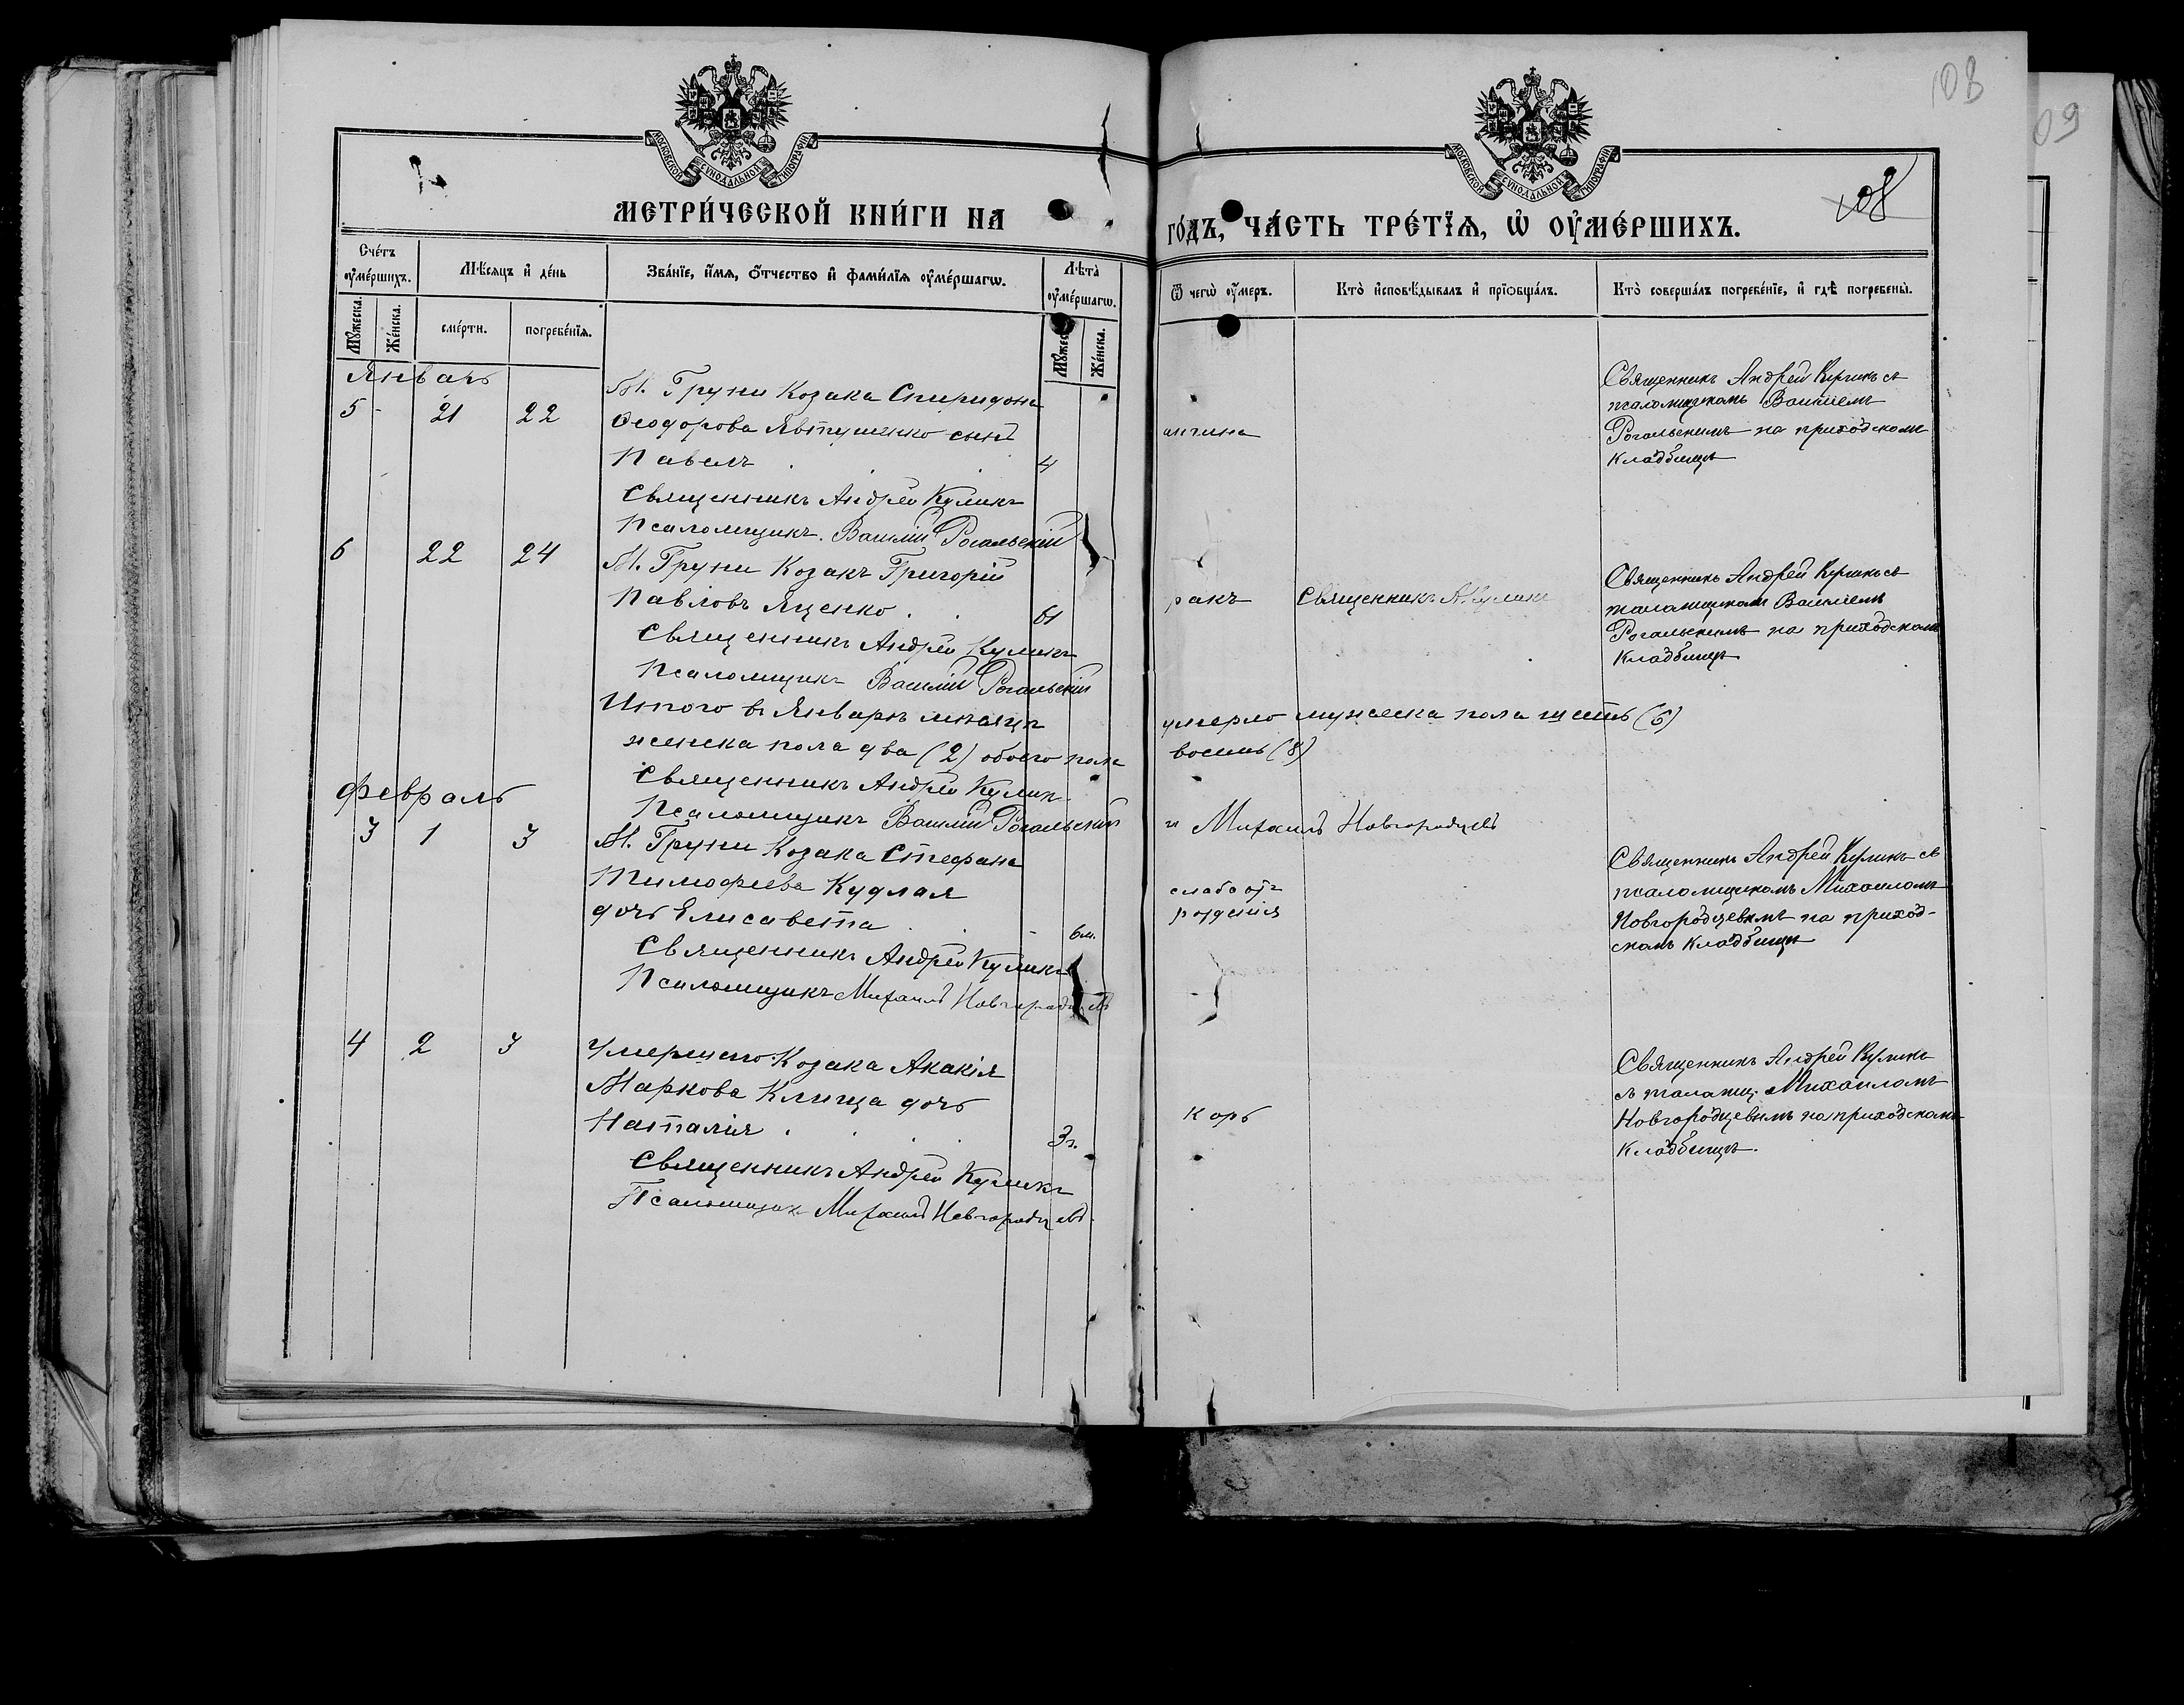 108
09
108
МОСКОВСКОЙ СѴНОДАЛЬНОЙ ТИПОГРАФІИ
МОСКОВСКОЙ СѴНОДАЛЬНОЙ ТИПОГРАФІИ
МЕТРИ́ЧЕСКОЙ КНИ́ГИ НА
ГО́ДЪ, ЧА́СТЬ ТРЕ́ТЇѦ, Ѡ҆ ОУ҆МЕ́РШИХЪ.
Сче́тъ оу҆ме́ршихъ.
Мꙋ́жеска.
Же́нска.
Мѣ́сяцъ и҆ де́нь
сме́рти.
погребе́нїѧ.
Зва́нїе, и҆́мѧ, ѻ҆́тчество и҆ фами́лїѧ оу҆ме́ршагѡ.
Лѣ́та̀ оу҆ме́ршагѡ.
Мꙋ́жеск
Же́нска.
Ѿ чегѡ̀ оу҆́меръ.
Кто̀ и҆сповѣ́дывалъ и҆ прїѻбща́лъ.
Кто̀ соверша́лъ погребе́нїе, и҆ гдѣ̀ погребены̀.
Январь
5 - 21 22
М. Груни Козака Спиридона
Ѳеодорова Явтушенко сынъ
Павелъ . . . 4
Священникъ Андрей Куликъ
Псаломщикъ. Василій Рогальскій
ангина
Священникъ Андрей Куликъ съ
псаломщикомъ Василіемъ
Рогальскимъ на приходскомъ
кладбищѣ
6 22 24
М. Груни Козакъ Григорій
Павловъ Яценко . . 61
Священникъ Андрей Куликъ
Псаломщикъ Василій Рогальскій
ракъ
Священникъ А. Куликъ
Священникъ Андрей Куликъ съ
псаломщикомъ Василіемъ
Рогальскимъ на приходскомъ
кладбищѣ
Итого въ Январѣ мѣсяцѣ умерло мужеска пола шесть (6)
женска пола два (2) обоего пола восемь (8)
Священникъ Андрей Кулик
Псаломщикъ Василій Рогальскій и Михаилъ Новгородцевъ
Февраль
3 1 3
М. Груни Козака Стефана
Тимофеева Кудлая
дочь Елисавета . . - 6м.
Священникъ Андрей Куликъ
Псаломщикъ Михаилъ Новгородцевъ
слабо отъ
рожденія
Священникъ Андрей Куликъ съ
псаломщикомъ Михаиломъ
Новгородцевымъ на приход-
скомъ кладбищѣ
4 2 3
Умершаго Козака Акакія
Маркова Клица дочь
Наталія . . . . 3г.
Священникъ Андрей Куликъ
Псаломщик Михаилъ Новгородцевъ.
корь
Священникъ Андрей Куликъ
съ псаломщ. Михаиломъ
Новгородцевымъ на приходскомъ
кладбищѣ.